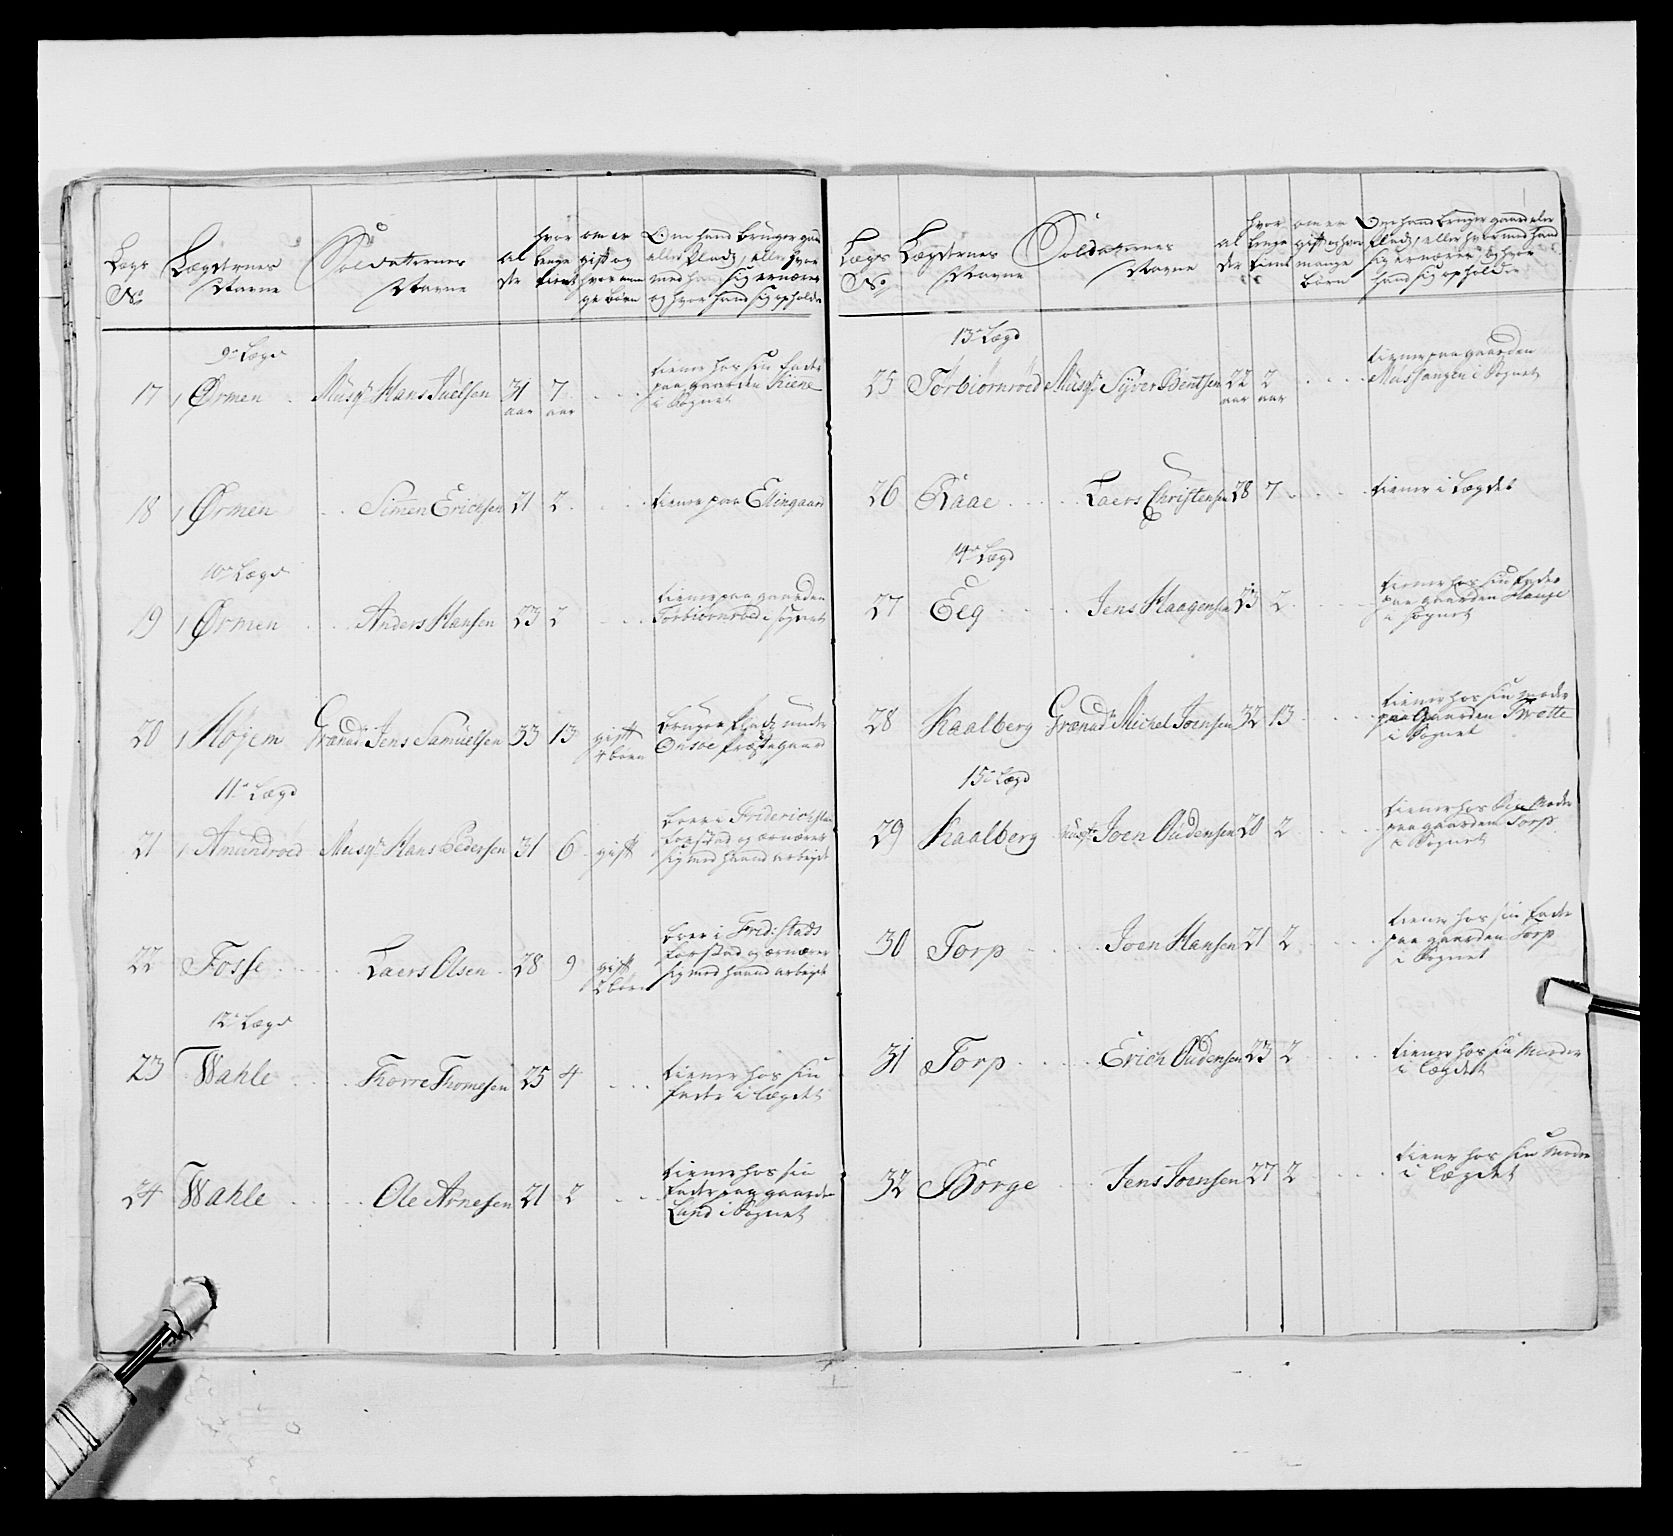 Lægs No
Lægdernes Navne
Soldatternes Navne
al der
hvor lenge tient
om er gift og hvor man ge børn
Om hand bruger gaard eller Plads, eller hvor med hand sig ernærer og hvor hand sig opholder
9de Lægd
17 1 Ørmen Musqr Hans Juelsen 31 aar 7 aar
tiener hos sin fader paa gaarden Kiene i Sognet
18 1 Ørmen Simen Ericksen 21 2 tiener paa Elingaard
10de Lægd
19 1 Ørmen Anders Hansen 23 2
tiener paa gaarden Torbiørnrød i sognet
20 1 Møjem Grænadr Jens Samuelsen 33 13 gift 4 børn
bruger Plads under Onsøe Præstegaard
11de Lægd
21 1 Amundrød Musqr Hans Pedersen 31 6 gift
boer i Friderichstad forstad og ernærer sig med haand arbejde
22 Fosse Laers Olsen 28 9 gift 2 børn
boer i Frid:stads forstad og ernærer sig med haand arbejde
12te Lægd
23 Wahle Thorre Thomesen 25 4
tiener hos sin fader i lægdet
24 Wahle Ole Arnesen 21 2
tiener hos sin fader paa gaarden Land i Sognet
Lægs No
Lægdernes Navne
Soldaternes Navne
al der
hvor lenge tient
om er gift og hvor mange børn
Om hand bruger gaard eller Plads, eller hvor med hand sig ernærer og hvor hand sig opholder
13de Lægd
25 Torbiørnrød Musqr Syver Bentsen 22 aar 2 aar
tiener paa gaarden i Sognet
26 Raae Laers Christensen 28 7 tiener i Lægdet
14de Lægd
27 Eeg Jens Haagensen 23 2
tiener hos sin fader paa gaarden Hauge i sognet
28 Kaalberg Grænadr Michel Joensen 32 13
tiener hos sin moder paa Gaarden Twette i Sognet
15de Lægd
29 Kaalberg Musqr Joen Oudensen 20 2
tiener hos sin Moder paa gaarden Torp i Sognet
30 Torp Joen Hansen 21 2
tiener hos sin fader paa gaarden Torp i Sognet
31 Torp Erich Oudensen 23 2
tiener hos sin Moeder i lægdet
32 Borge Jens Joensen 27 2
tiener hos sin Moder i lægdet